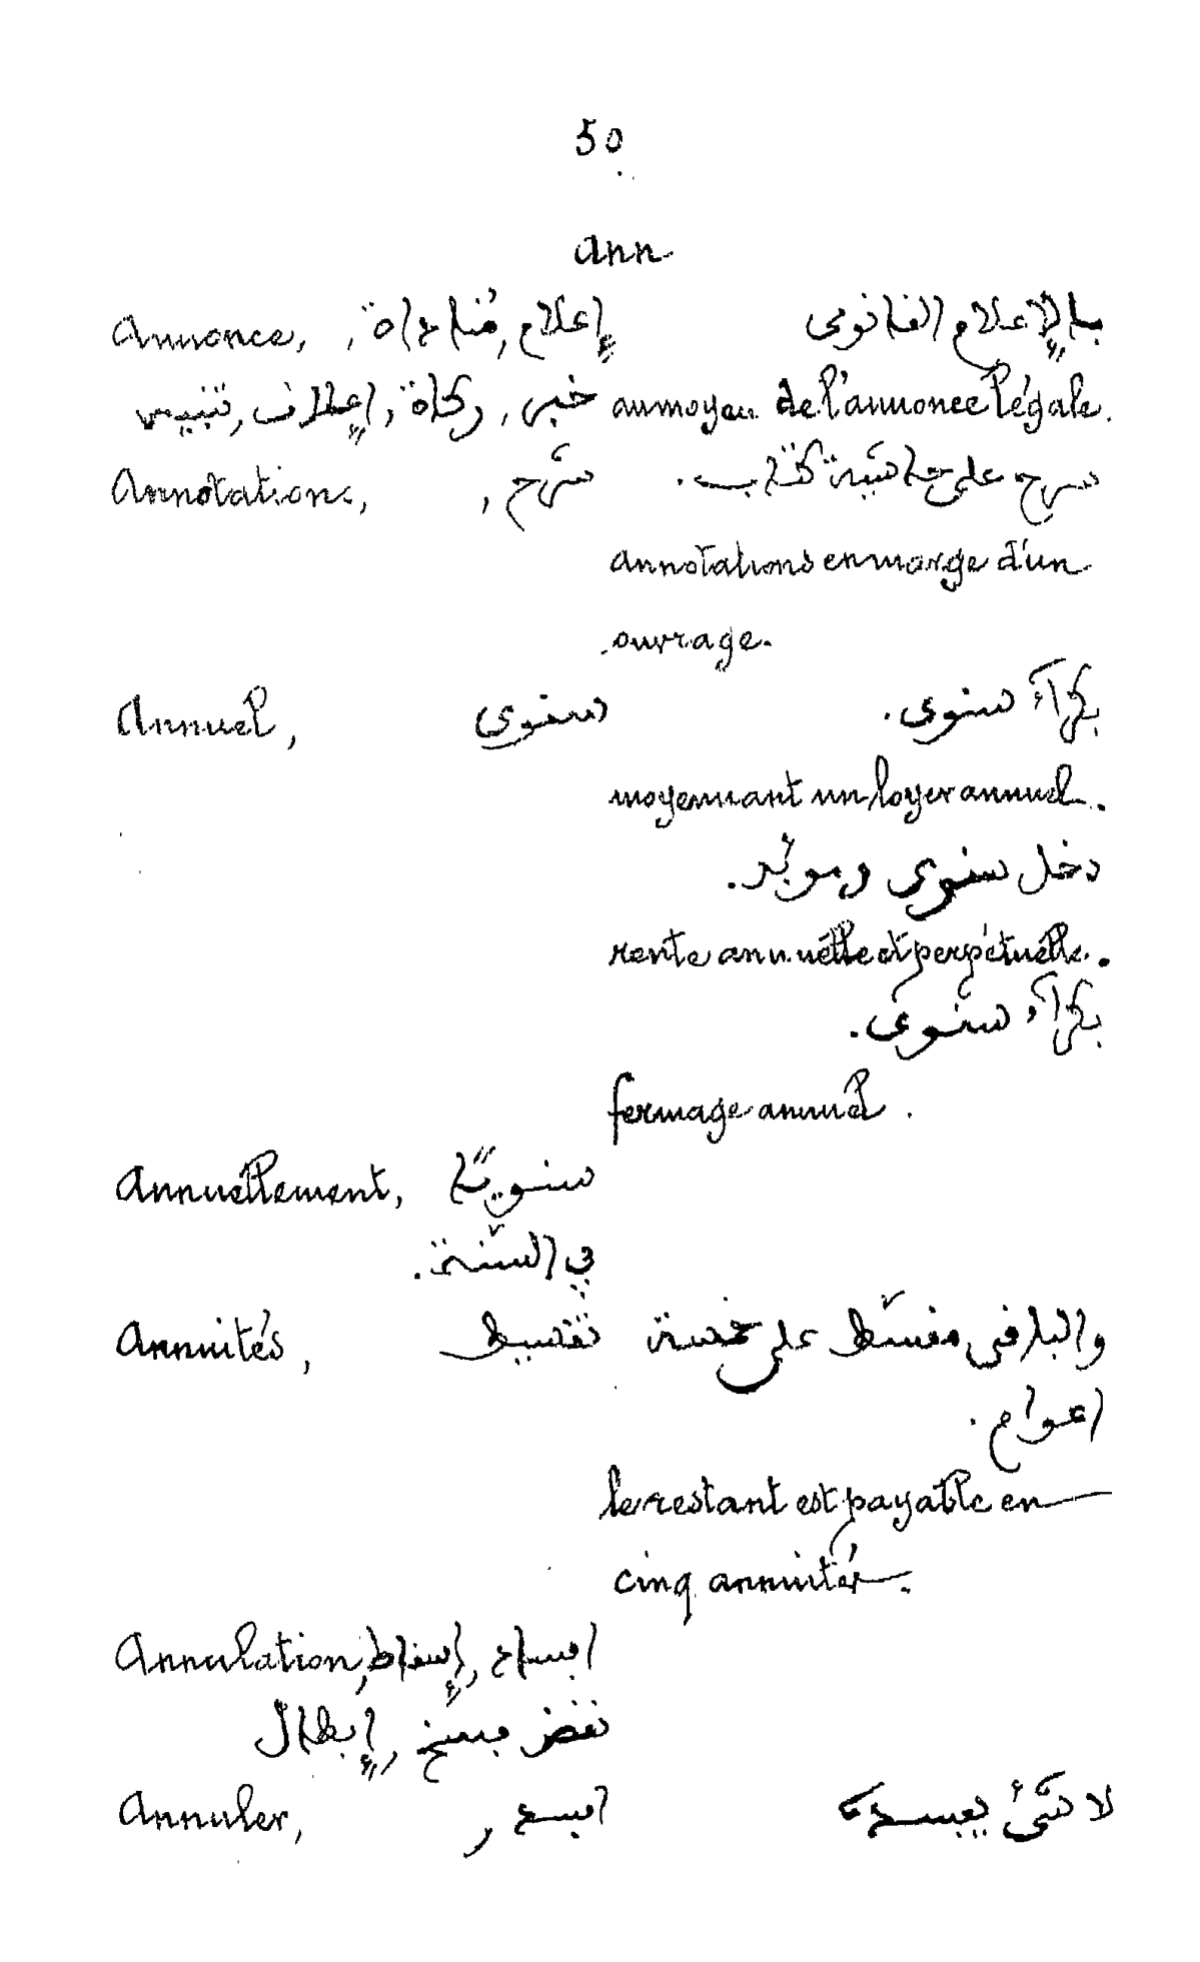 50
ann
Annonce, إعلام, مُناداة, بالإعلام القانوني
خبر, إعلان, تنبيه au moyen de l'annonce légale.
Annotations, شرح, شرح على حاشية كتاب.
annotations en marge d'un
ouvrage.
Annuel, سنوى بكراء سنوى.
moyennant un loyer annuel.
دخل سنوى وموبّد.
rente annuelle et perpétuelle.
بكراء سنوى.
fermage annuel.
Annuellement, سنويّا
في السّنة.
Annuités, تقسيط والباقى مقسّط على خمسة
اعوام.
le restant est payable en
cinq annuités.
Annulation, افساد, إسقاط,
نقض فسخ, إبطال
Annuler, افسد, لا شىء يفسده